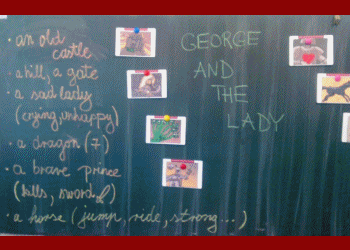 · an old
castle
· a hill, a gate
· a sad lady
(crying, unhappy)
· a dragon (7)
· a brave prince
(kills, sword)
· a horse (jump, ride, strong...)
GEORGE
AND
THE
LADY